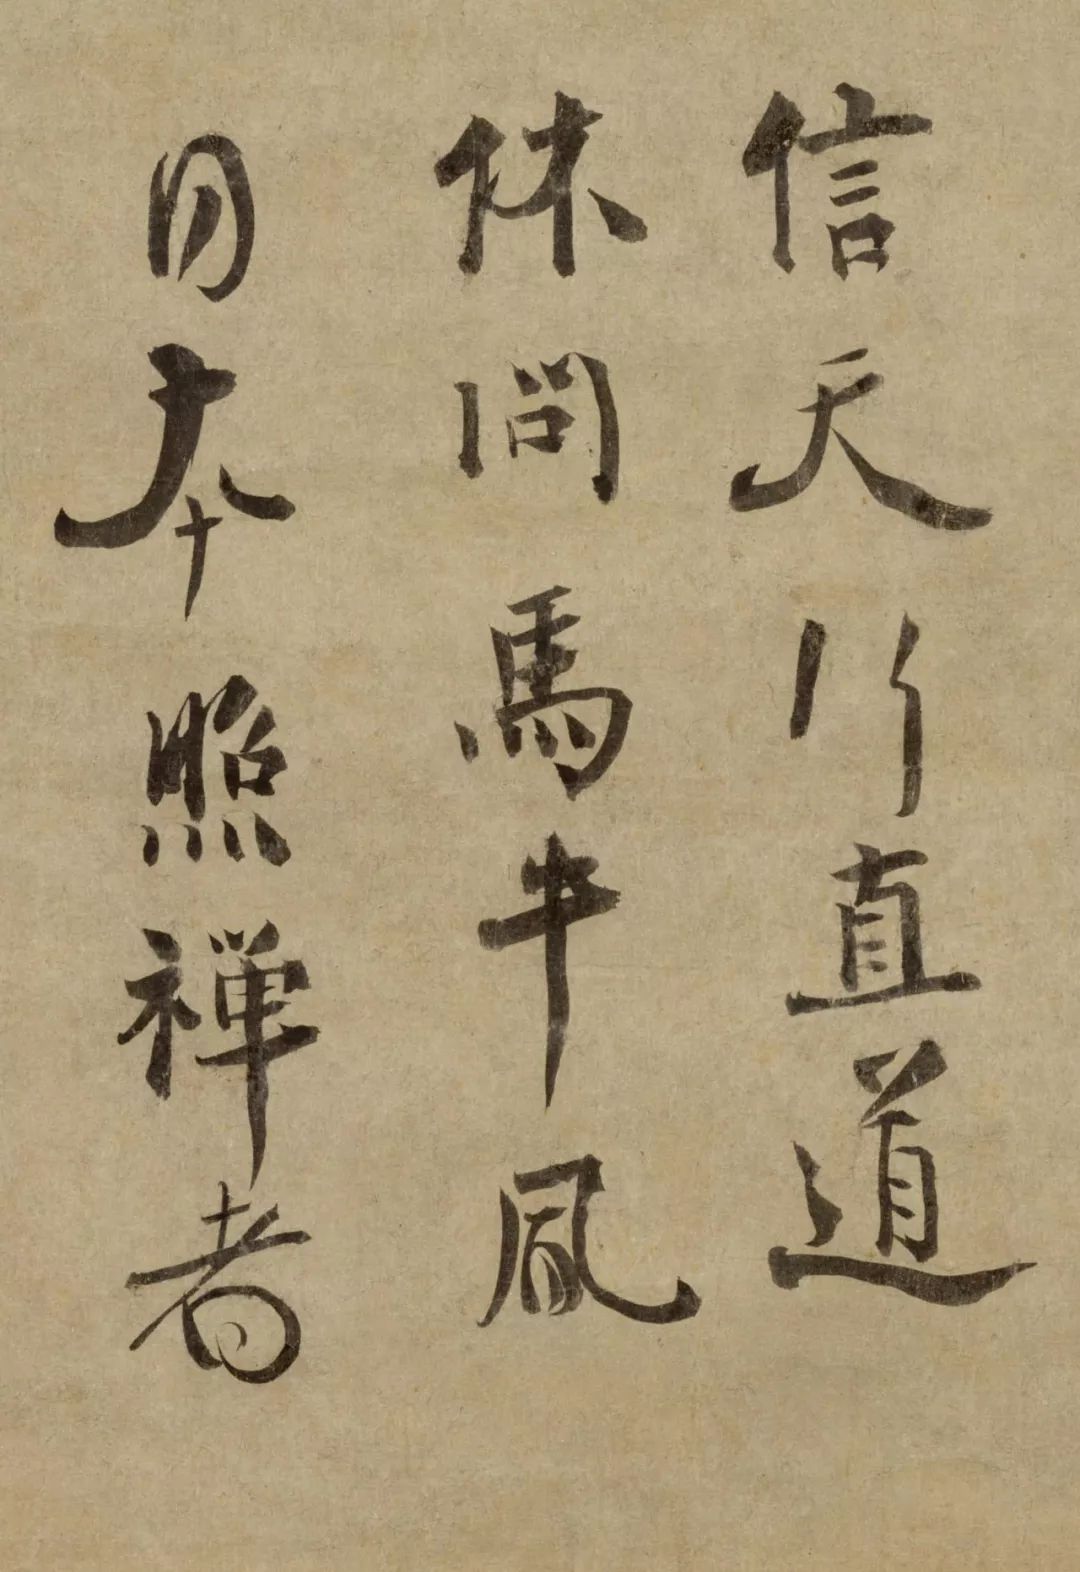 信天行直道
休問馬牛風
日本照禅者